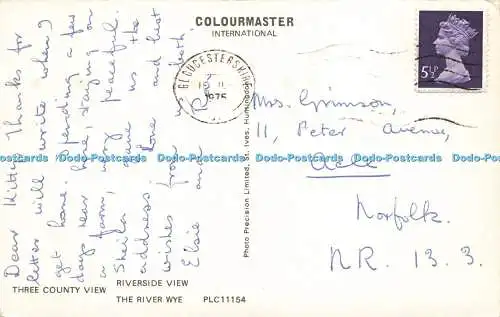 COLOURMASTER
INTERNATIONAL
5½P
GLOUCESTERSHIRE
1975
Dear Kitty, Thanks for
letter will write when I
get home. Spending a few
days near here, staying on
a farm, very peaceful.
Sheila gave us the
address. Love and best
wishes from us both.
Elsie and R
Mrs. Grimson,
11, Peter Avenue,
Acle
Norfolk.
NR. 13. 3.
Photo Precision Limited, St. Ives, Huntingdon
Dodo-Postcards Dodo-Postcards Dodo-Postcards Dodo-Postcards Dodo-Postcards
THREE COUNTY VIEW
RIVERSIDE VIEW
THE RIVER WYE PLC11154